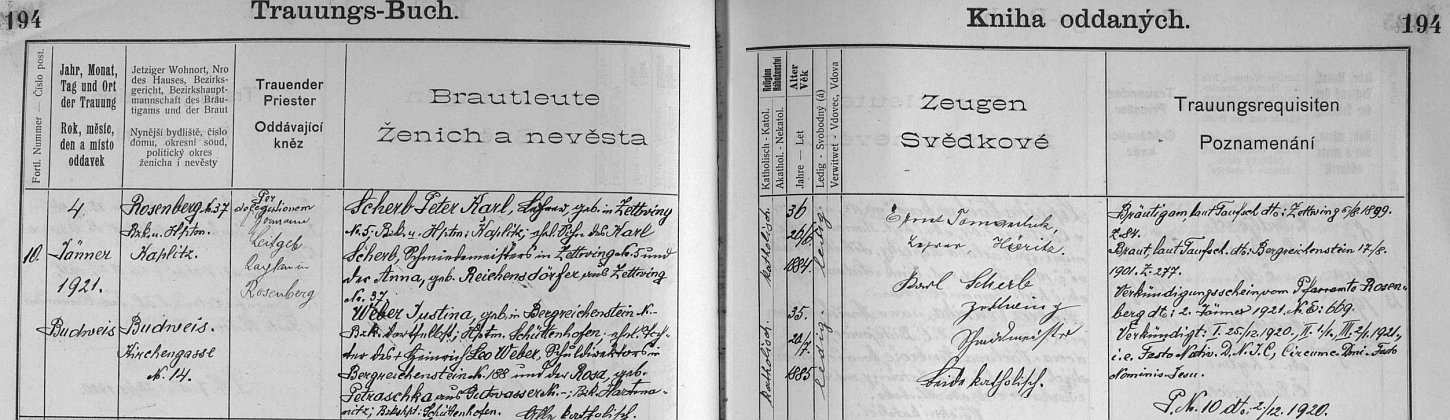 194
Trauungs-Buch.
Kniha oddaných.
194
Fortl. Nummer — Číslo post.
Jahr, Monat,
Tag und Ort
der Trauung
Rok, měsíc,
den a místo
oddavek
Jetziger Wohnort, Nro
des Hauses, Bezirks-
gericht, Bezirkshaupt-
mannschaft des Bräu-
tigams und der Braut
Nynější bydliště, číslo
domu, okresní soud,
politický okres
ženicha i nevěsty
Trauender
Priester
Oddávající
kněz
Brautleute
Ženich a nevěsta
Religion
Náboženství
Katholisch - Katol.
Akathol. - Nekatol.
Alter
Věk
Jahre — Let
Ledig - Svobodný (á)
Verwitwet - Vdovec, Vdova
Zeugen
Svědkové
Trauungsrequisiten
Poznamenání
10.
4.
Jänner
1921.
Budweis
Rosenberg N. 37
Bzk. u. Hptm.
Kaplitz.
Budweis.
Kirchengasse
N. 14.
Per
delegationem
Leitgeb
Kaplan in
Rosenberg
Scherb Peter Karl, Lehrer, geb. in Zettwing
N. 5. Bzk. u. Hptm. Kaplitz; ehel. Sohn des Karl
Scherb, Schmiedemeisters in Zettwing N. 5 und
der Anna, geb. Reichensdörfer, aus Zettwing
No. 37.
Weber Justina, geb. in Bergreichenstein N.-
Bzk. dortselbst; Hptm. Schüttenhofen; ehel. Toch-
ter des † Heinrich Leo Weber, Schuldirektors in
Bergreichenstein N. 188 und der Rosa, geb.
Petraschka aus Gutwasser N. -; Bzk. Hartma-
nitz; Bzkhpt. Schüttenhofen. Alle katholisch.
katholisch.
36
26/6
1884.
ledig.
katholisch.
35.
24/7.
1885
ledig.
Lehrer Höritz.
Karl Scherb
Zettwing
Schmiedmeister
beide katholisch.
Bräutigam, laut Taufsch. dto: Zettwing 5/8. 1899.
Z. 84.
Braut, laut Taufsch. dto. Bergreichenstein 17/8.
1901. Z. 277.
Verkündigungsschein vom Pfarramte Rosen-
berg dto: 2. Jänner 1921. N. E: 669.
Verkündigt: I. 25/12. 1920, II. 1/1., III. 2/1. 1921,
i. e. Festo Nativ. D. N. I. C., Circumc. Dni. Festo
Nominis Jesu.
P. N. 10 dto. 2/12. 1920.